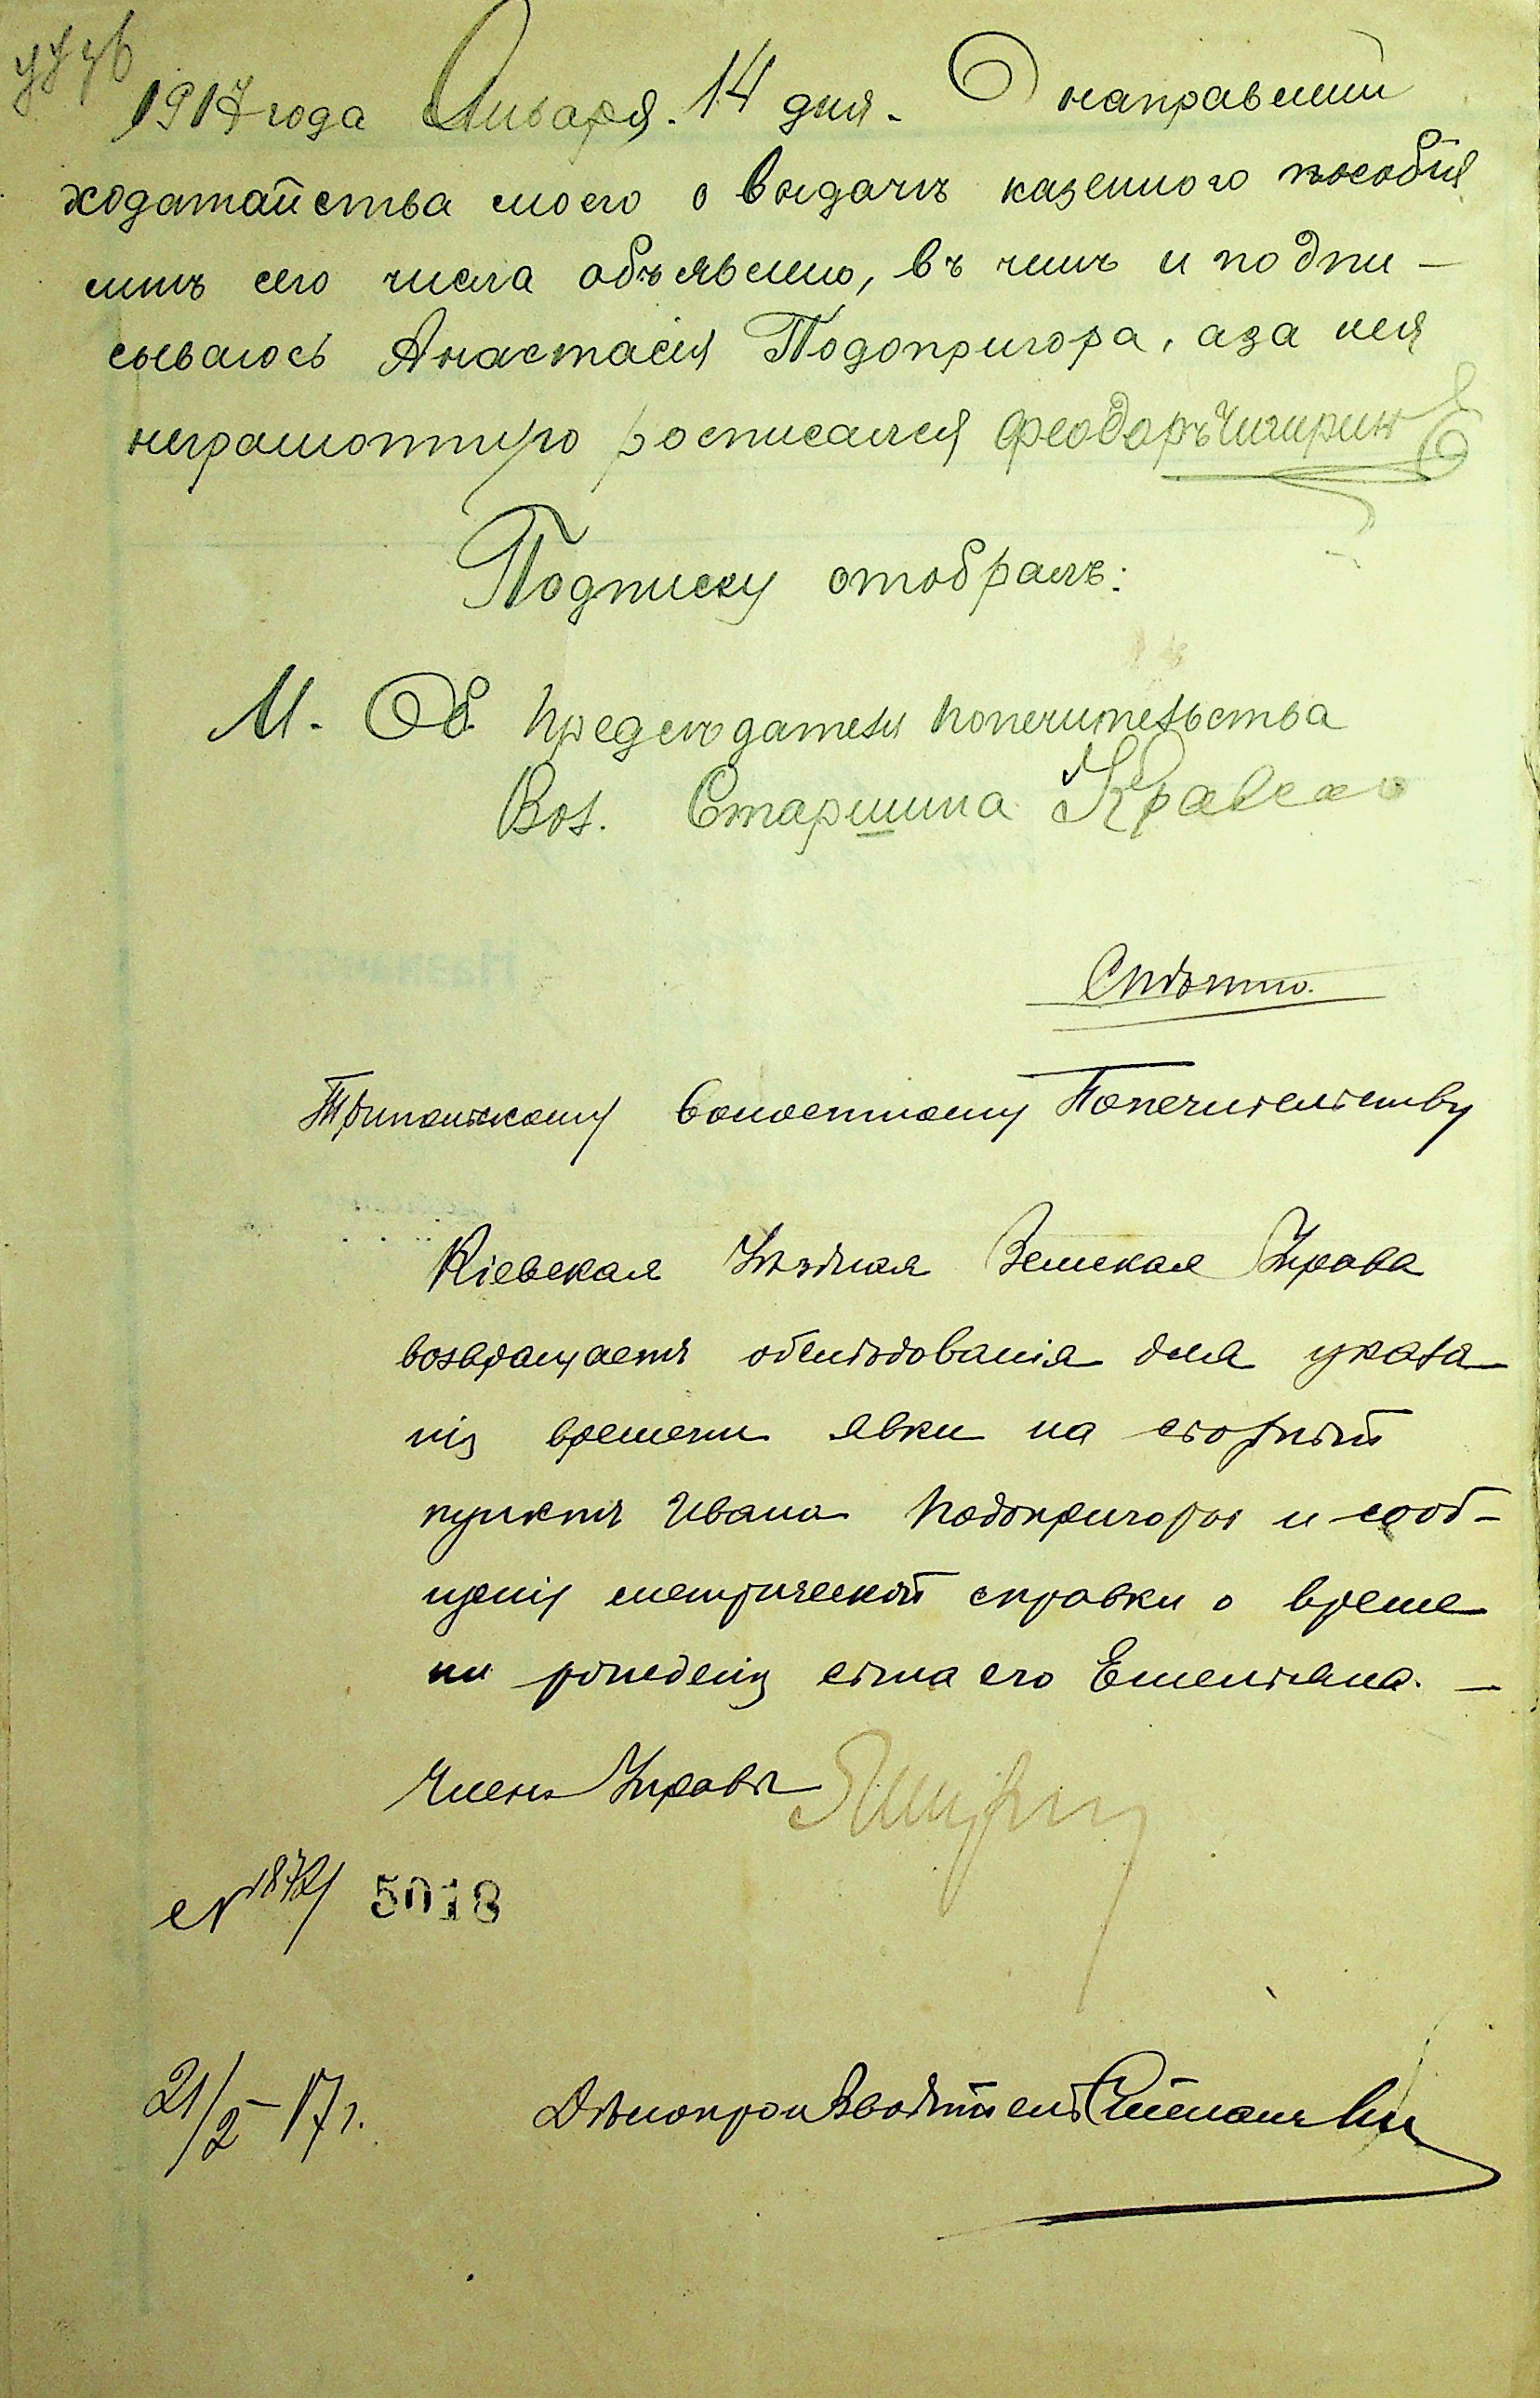 1917 года Января 14 дня. О направлении
ходатайства моего о выдачѣ казенного пособия
мнѣ сего числа объявлено, въ чемъ и подпи-
сываюсь Анастасия Подопригора, а за нея
неграмотную росписался Феодоръ Чигирин
Подписку отобралъ:
М. Об. Председателя попечительства
Вол. Старшина Кравско
Спѣшно.
Трипольскому волостному Попечительству
Кіевская Уѣздная Земская Управа
возвращаетъ обслѣдованія для указа
нія времени явки на сборный
пунктъ Ивана Подопригоры и сооб-
щенія метрической справки о време
ни рожденія сына его Емельяна. —
Членъ Управы
№ 1872/ 5018
21/2-17 г. Дѣлопроизводитель